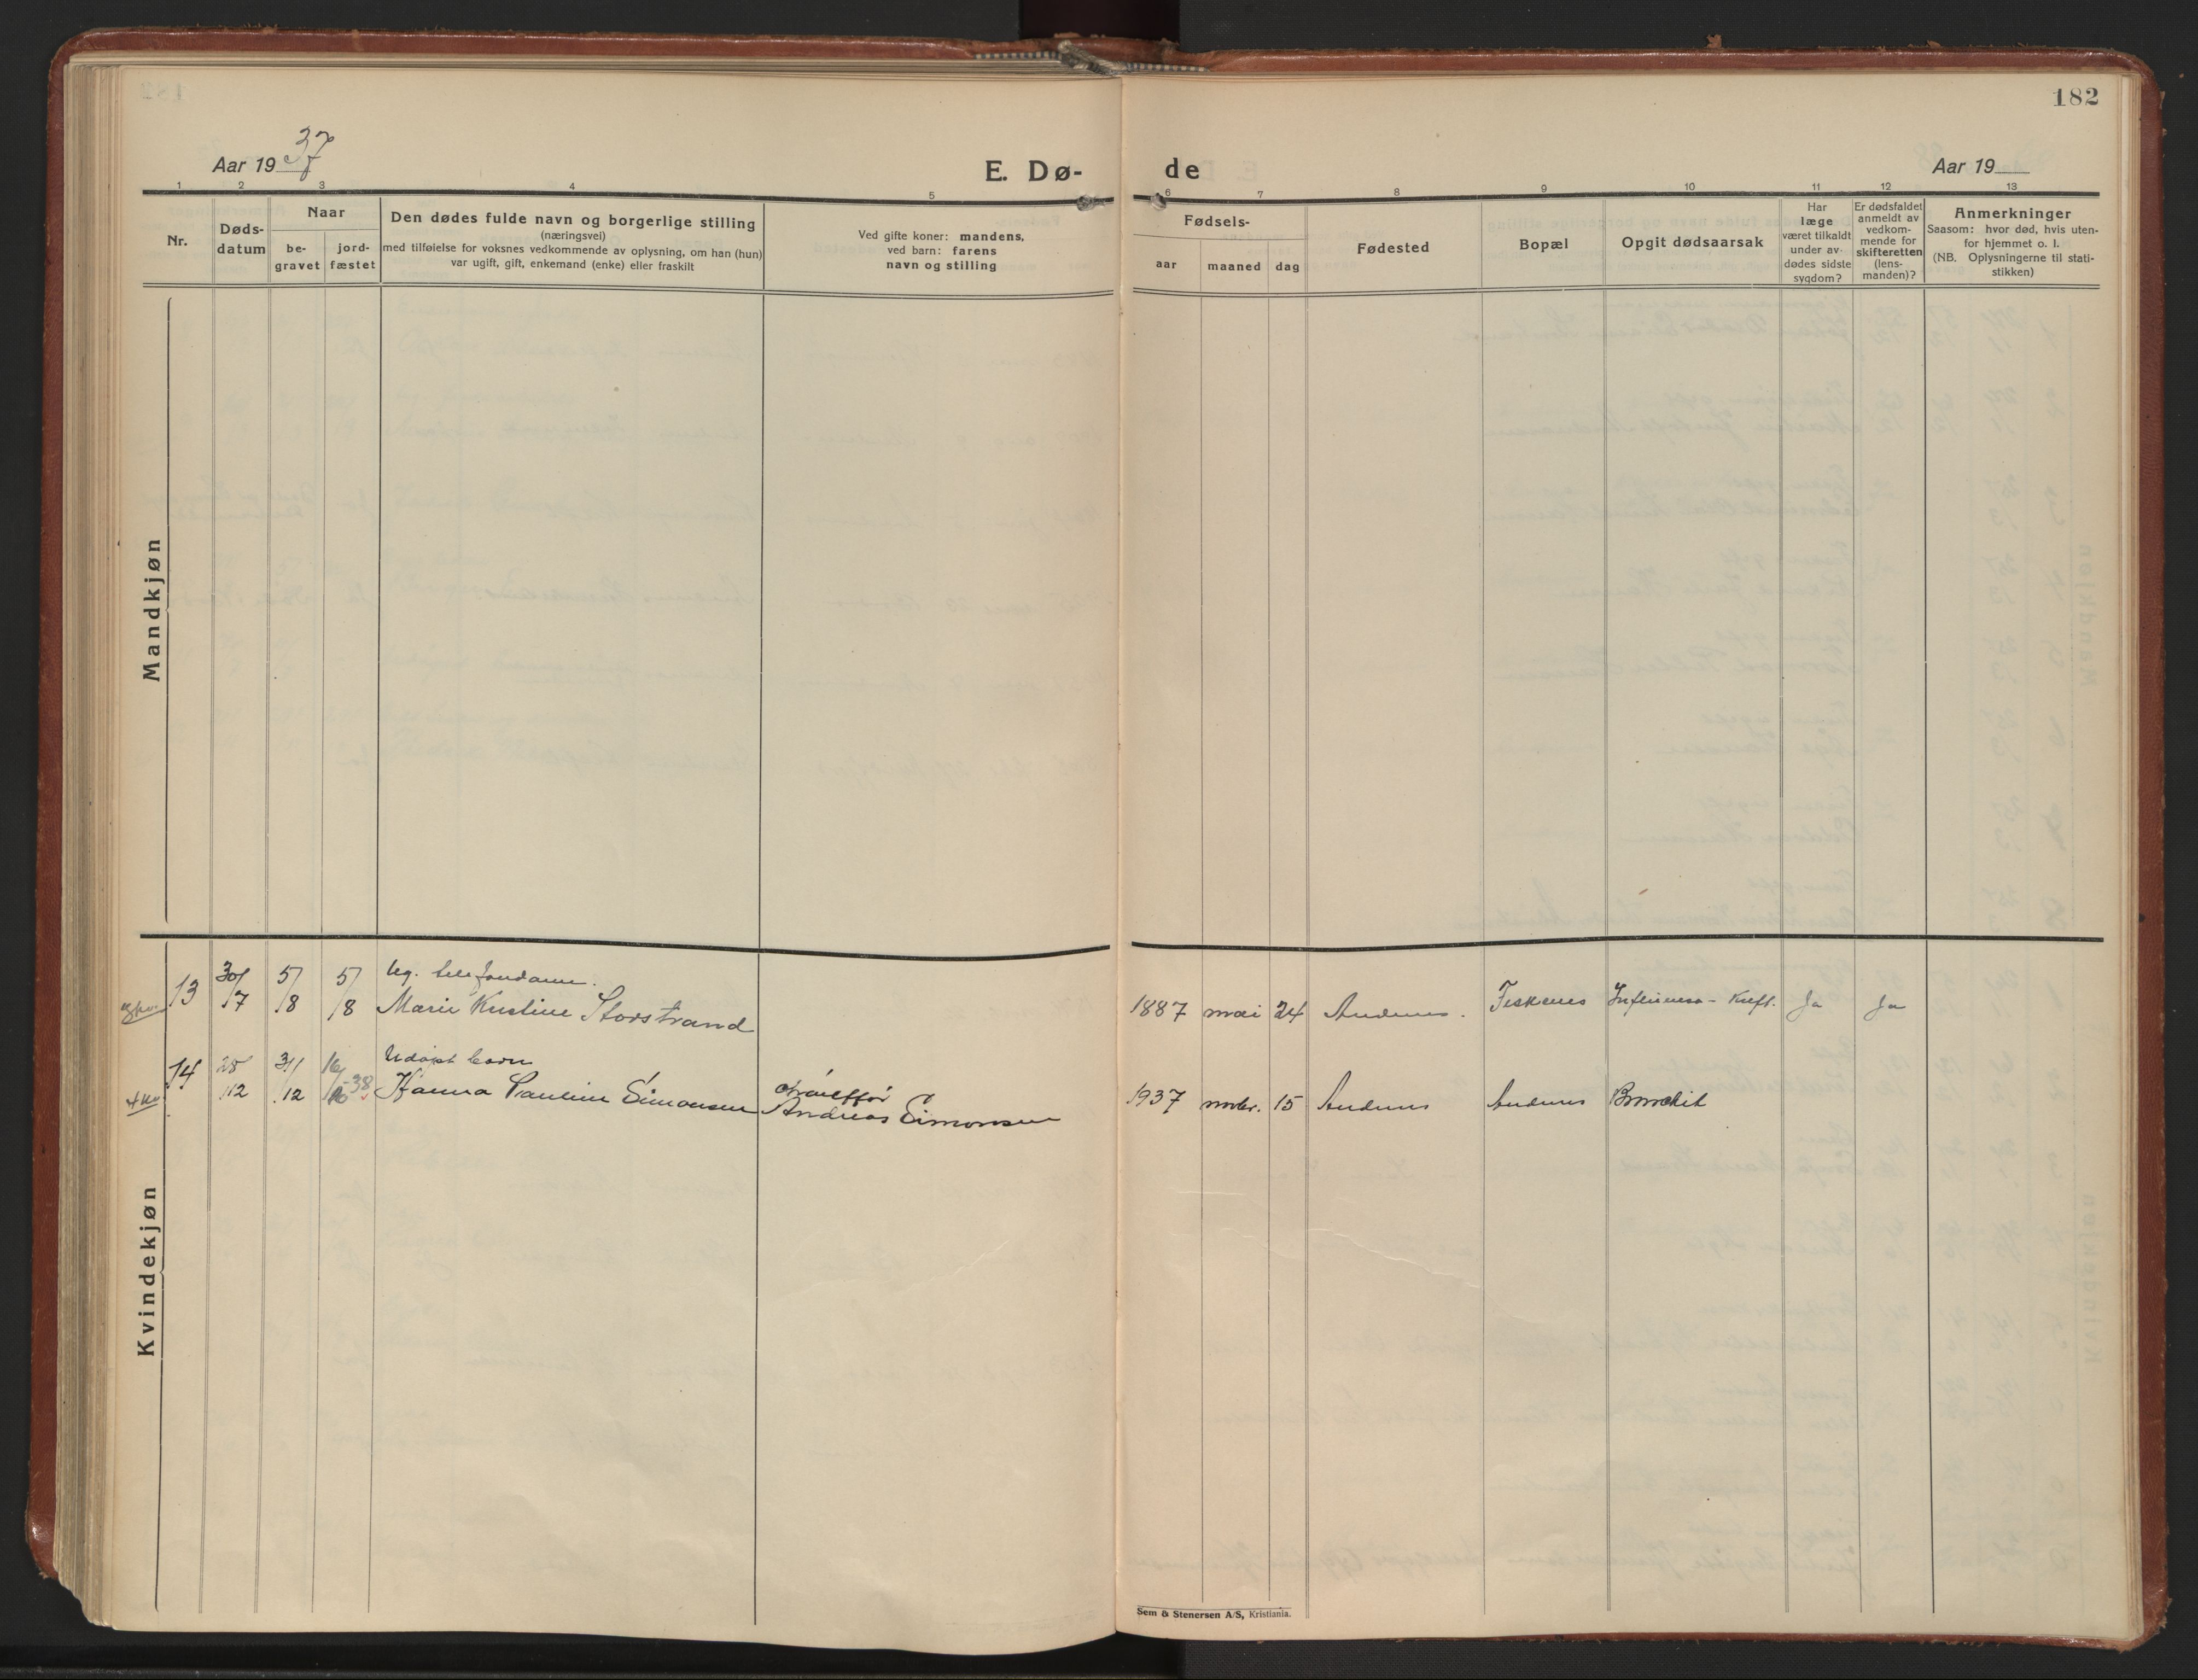 182
Aar 1937
E. Dø-
de
Aar 19
1 2 3 4 5 6 7 8 9 10 11 12 13
Nr.
Døds-
datum
Naar
be-
gravet
jord-
fæstet
Den dødes fulde navn og borgerlige stilling
(næringsvei)
med tilføielse for voksnes vedkommende av oplysning, om han (hun)
var ugift, gift, enkemand (enke) eller fraskilt
Ved gifte koner: mandens,
ved barn: farens
navn og stilling
Fødsels-
aar
maaned
dag
Fødested
Bopæl
Opgit dødsaarsak
Har
læge
været tilkaldt
under av-
dødes sidste
sygdom?
Er dødsfaldet
anmeldt av
vedkom-
mende for
skifteretten
(lens-
manden)?
Anmerkninger
Saasom: hvor død, hvis uten-
for hjemmet o. l.
(NB. Oplysningerne til stati-
stikken)
Mandkjøn
Kvindekjøn
13 30/7 5/8 5/8 Ug. telefondame.
Marie Kristine Storstrand 1887 mai 24 Andenes. Fiskenes Influensa - Kreft. Ja Ja
14 28/12 31/12 16/ -38 Udøpt barn
Hanna Pauline Simonsen Andreas Simonsen 1937 novbr. 15 Andenes Andenes Bronchit
Sem & Stenersen A/S, Kristiania.